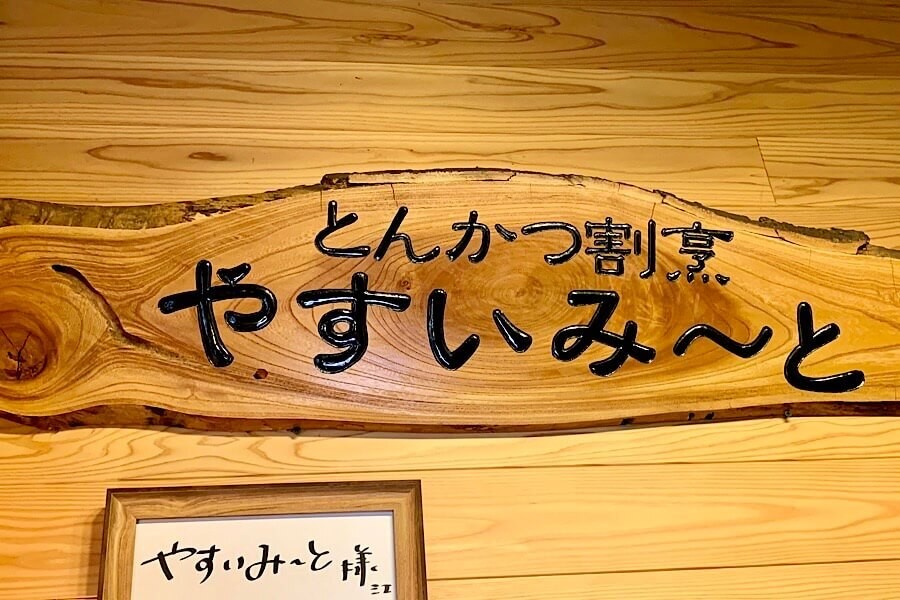 とんかつ割烹
やすいみ～と
やすいみ～と様